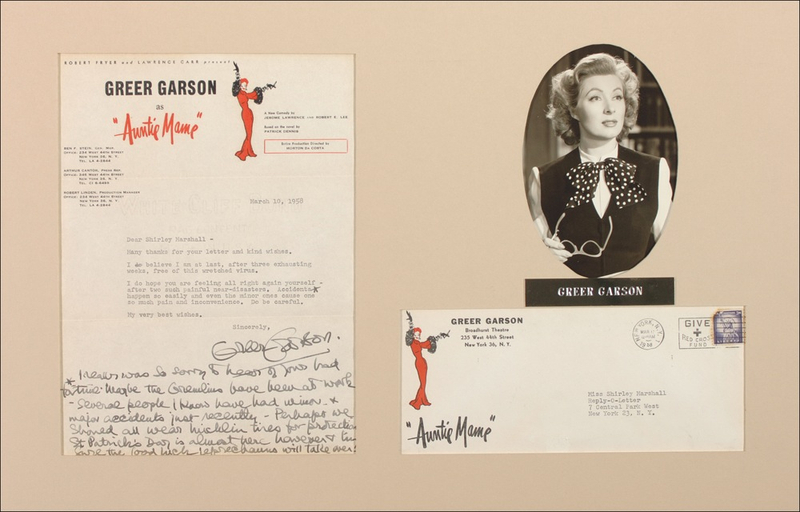 ROBERT FRYER and LAWRENCE CARR present
GREER GARSON
as
"Auntie Mame"
A New Comedy by
JEROME LAWRENCE and ROBERT E. LEE
Based on the novel by
PATRICK DENNIS
Entire Production Directed by
MORTON DA COSTA
BEN F. STEIN, Gen. Mgr.
OFFICE: 235 WEST 44TH STREET
NEW YORK 36, N. Y.
ARTHUR CANTOR, PRESS REP.
NEW YORK 36, N. Y.
ROBERT LINDEN, PRODUCTION MANAGER
OFFICE: 235 WEST 44TH STREET
NEW YORK 36, N. Y.
March 10, 1958
Dear Shirley Marshall -
Many thanks for your letter and kind wishes.
I do believe I am at last, after three exhausting
weeks, free of this wretched virus.
I do hope you are feeling all right again yourself -
after two such painful near-disasters. Accidents*
happen so easily and even the minor ones cause one
so much pain and inconvenience. Do be careful.
My very best wishes.
Sincerely,
Greer Garson.
* I really was so sorry to hear of your bad
fortune. Maybe the Gremlins have been at work
- Several people I know have had minor &
major accidents just recently - Perhaps we
should all wear for protection
St Patrick's Day is almost here however &
the good luck leprechauns will take over!
GREER GARSON
GREER GARSON
Broadhurst Theatre
235 West 44th Street
New York 36, N. Y.
"Auntie Mame"
NEW YORK, N.Y.
1958
GIVE
RED CROSS
FUND
Miss Shirley Marshall
Reply-O-Letter
7 Central Park West
New York 23, N. Y.